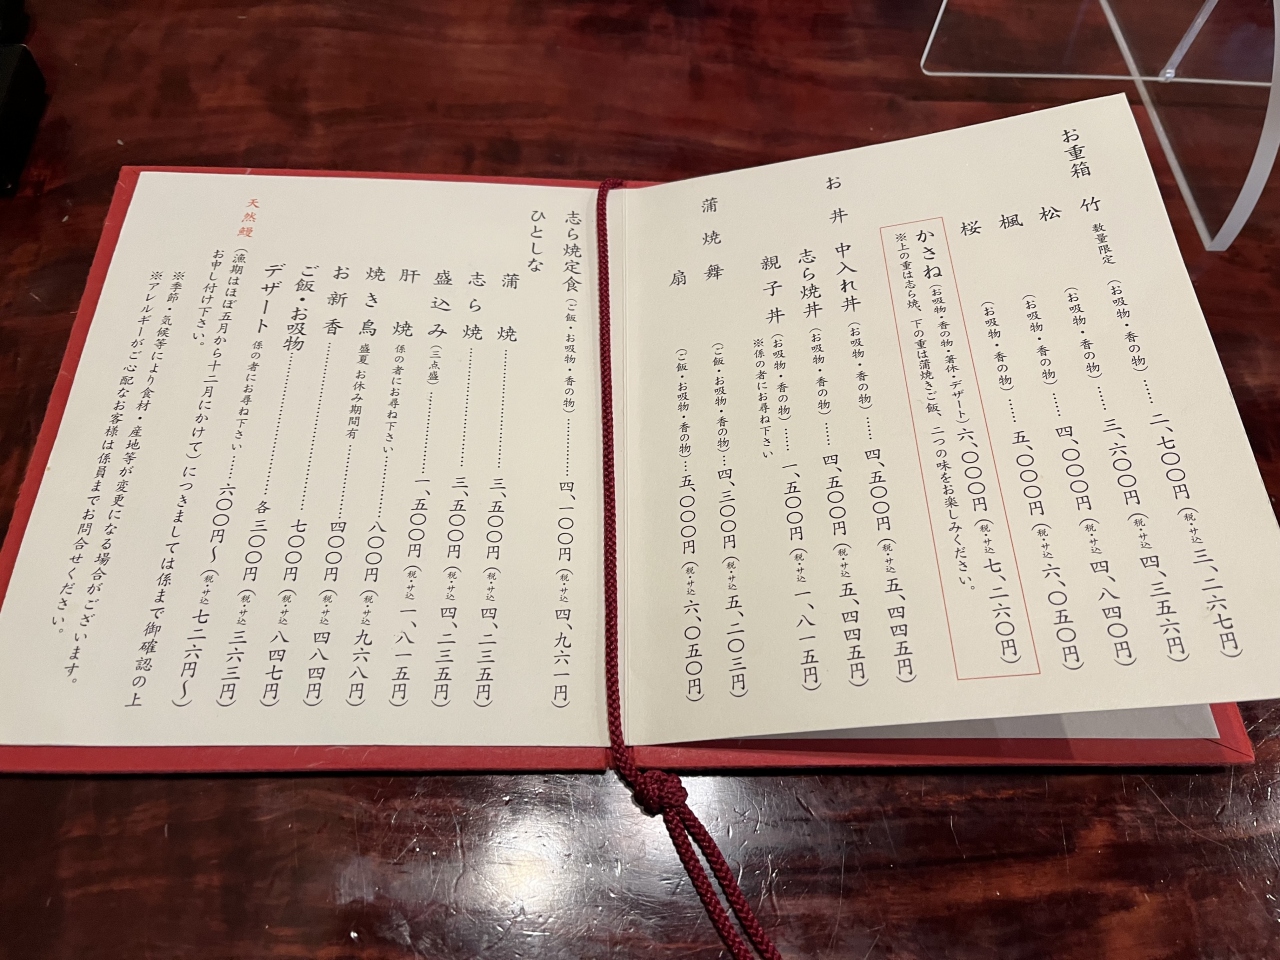 お重箱 竹 数量限定 (お吸物・香の物)……二、七〇〇円(税・サ込 三、二六七円)
松 (お吸物・香の物)……三、六〇〇円(税・サ込 四、三五六円)
楓 (お吸物・香の物)……四、〇〇〇円(税・サ込 四、八四〇円)
桜 (お吸物・香の物)……五、〇〇〇円(税・サ込 六、〇五〇円)
かさね(お吸物・香の物・箸休・デザート)六、〇〇〇円(税・サ込 七、二六〇円)
※上の重は志ら焼、下の重は蒲焼きご飯、二つの味をお楽しみください。
お丼 中入れ丼(お吸物・香の物)……四、五〇〇円(税・サ込 五、四四五円)
志ら焼丼(お吸物・香の物)……四、五〇〇円(税・サ込 五、四四五円)
親子丼(お吸物・香の物)……一、五〇〇円(税・サ込 一、八一五円)
※係の者にお尋ね下さい
蒲焼 舞 (ご飯・お吸物・香の物)…四、三〇〇円(税・サ込 五、二〇三円)
扇 (ご飯・お吸物・香の物)…五、〇〇〇円(税・サ込 六、〇五〇円)
志ら焼定食(ご飯・お吸物・香の物)………四、一〇〇円(税・サ込 四、九六一円)
ひとしな
蒲焼………………三、五〇〇円(税・サ込 四、二三五円)
志ら焼………………三、五〇〇円(税・サ込 四、二三五円)
盛込み(三点盛)…………一、五〇〇円(税・サ込 一、八一五円)
肝焼 係の者にお尋ね下さい……八〇〇円(税・サ込 九六八円)
焼き鳥 盛夏 お休み期間有………四〇〇円(税・サ込 四八四円)
お新香………………………七〇〇円(税・サ込 八四七円)
ご飯・お吸物………………………各 三〇〇円(税・サ込 三六三円)
デザート 係の者にお尋ね下さい……六〇〇円～(税・サ込 七二六円～)
天然鰻 (漁期はほぼ五月から十二月にかけて)につきましては係まで御確認の上
お申し付け下さい。
※季節・気候等により食材・産地等が変更になる場合がございます。
※アレルギーがご心配なお客様は係員までお問合せください。